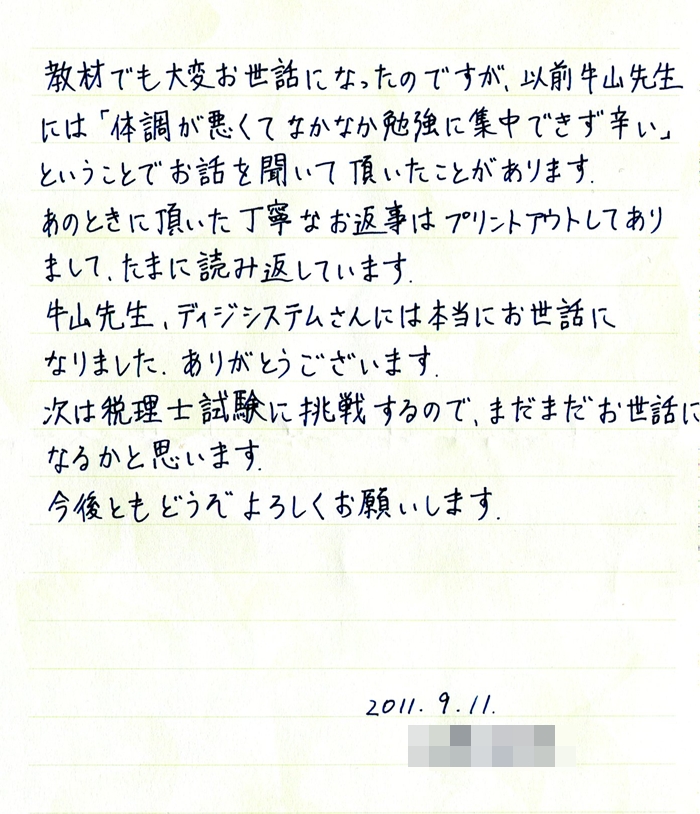 教材でも大変お世話になったのですが、以前牛山先生
には「体調が悪くてなかなか勉強に集中できず辛い」
ということでお話を聞いて頂いたことがあります.
あのときに頂いた丁寧なお返事はプリントアウトしてあり
まして、たまに読み返しています.
牛山先生、ディジシステムさんには本当にお世話に
なりました. ありがとうございます.
次は税理士試験に挑戦するので、まだまだお世話に
なるかと思います.
今後ともどうぞよろしくお願いします.
2011. 9. 11.